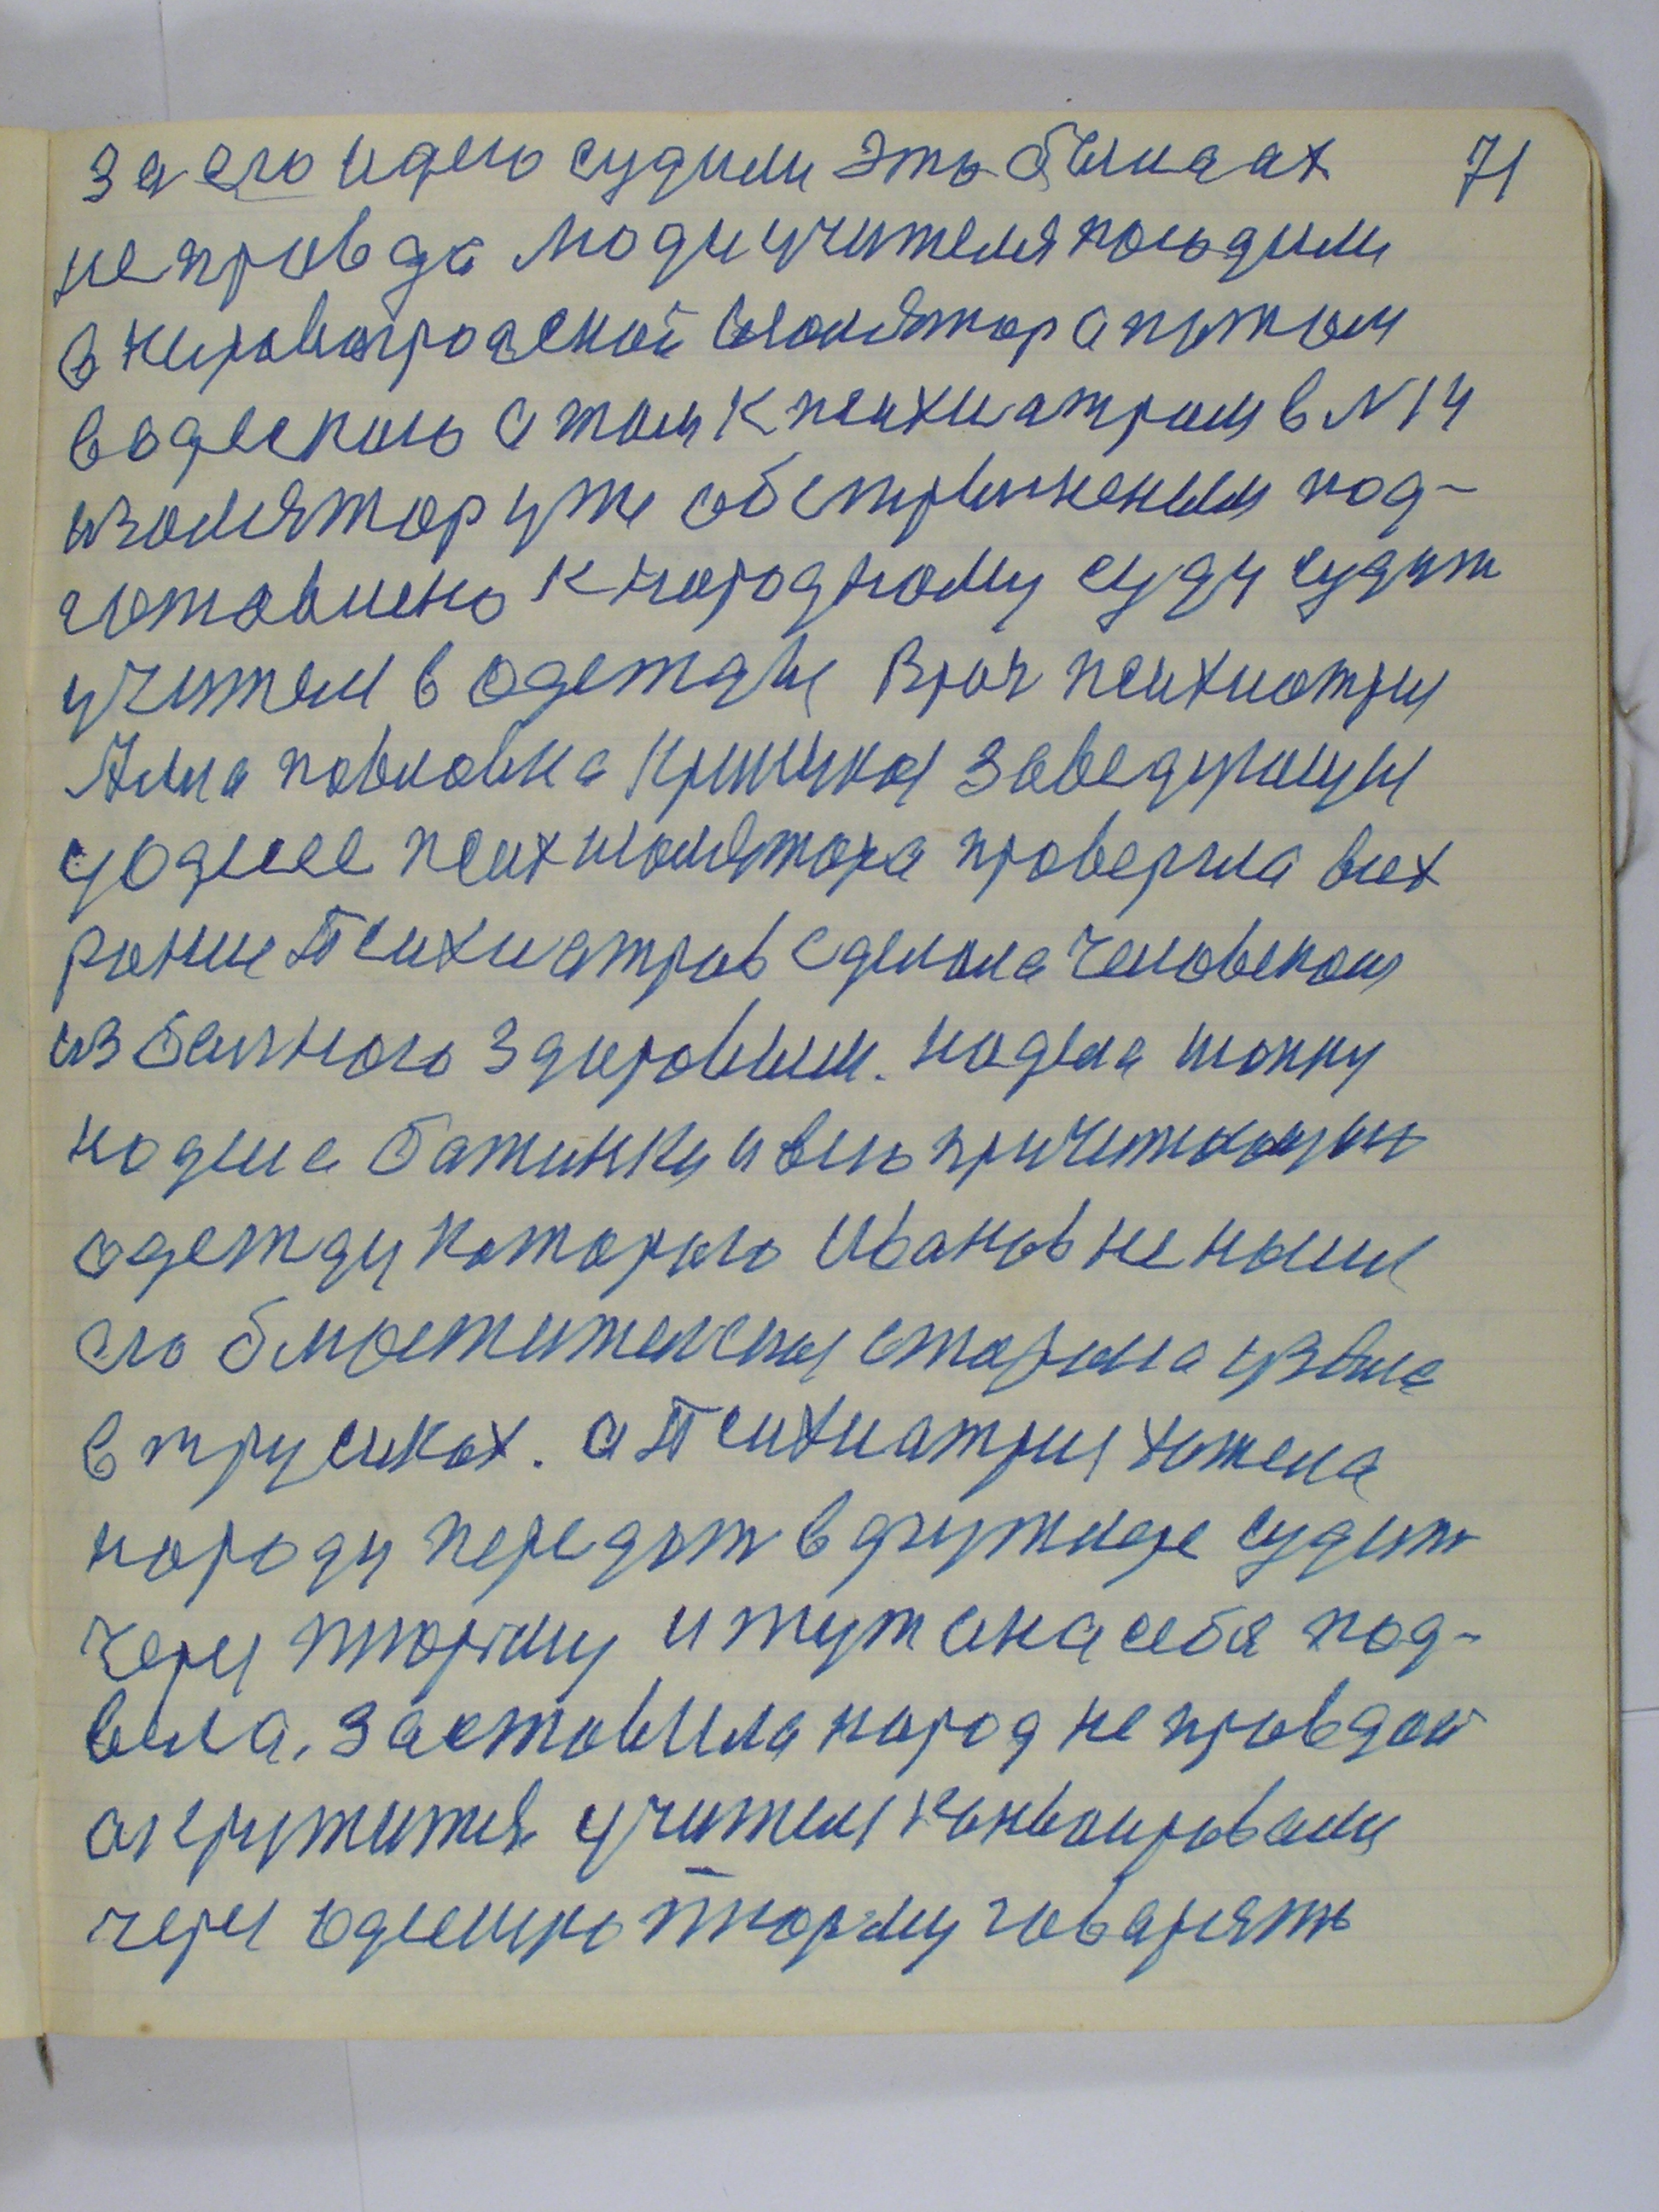 за его идею судили это была ах 71
не правда люди учителя посадили
в Кировоградской изолятор а потом
в одескою а там к психиатрам в N 14
изолятор уже обстриженим под-
готовлено к народному суду судит
учителя в одежды Врач психиатрии
Алла павловна Кришкая заведующия
у одессе псих изолятора проверила всех
рание психиатров сделала человеком
из больного здоровим. надела шапку
надела батинки и всю причитающую
одежду которою Иванов не носил
его блюстителская сторона взяла
в трусиках. а психиатрия хотела
народу передат в другужде судить
через тюрьму и тут она себя под-
вела. Заставила народ не правдой
окружится учителя конвоировали
через одескую тюрьму говарять